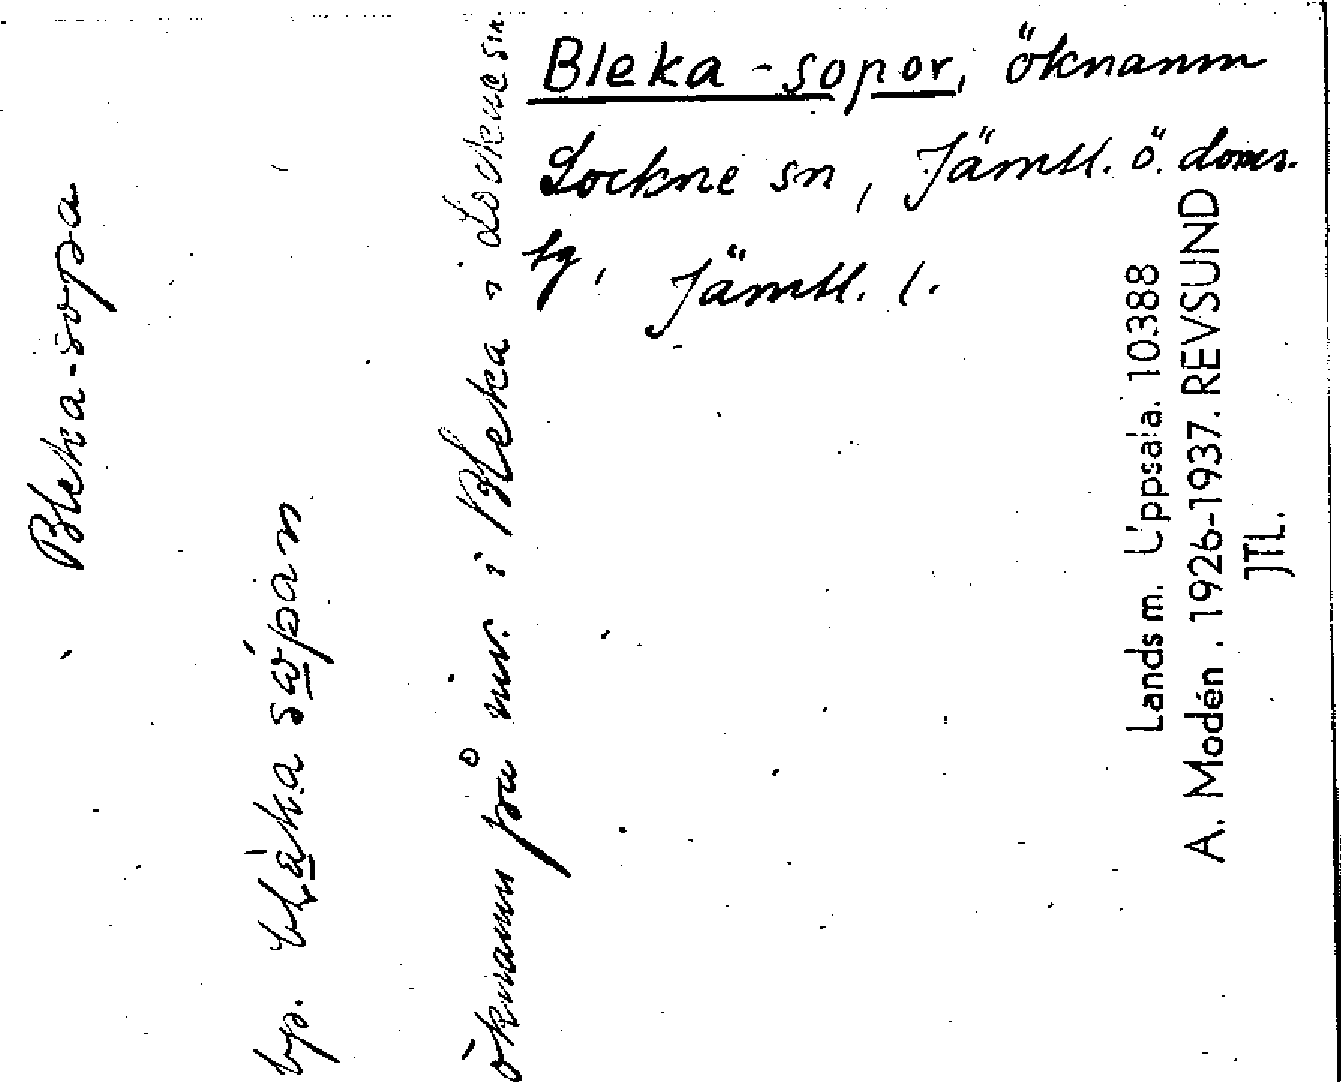 Bleka-sopor, öknamn
Lockne sn, Jämtl. ö. doms.
tg, Jämtl. l.
Bleka-sopa
bp.
öknamn på inv. i Bleka i Lockne sn.
Landsm. Uppsala. 10388
A. Modén. 1926-1937. REVSUND
JTL.